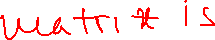 matrix is